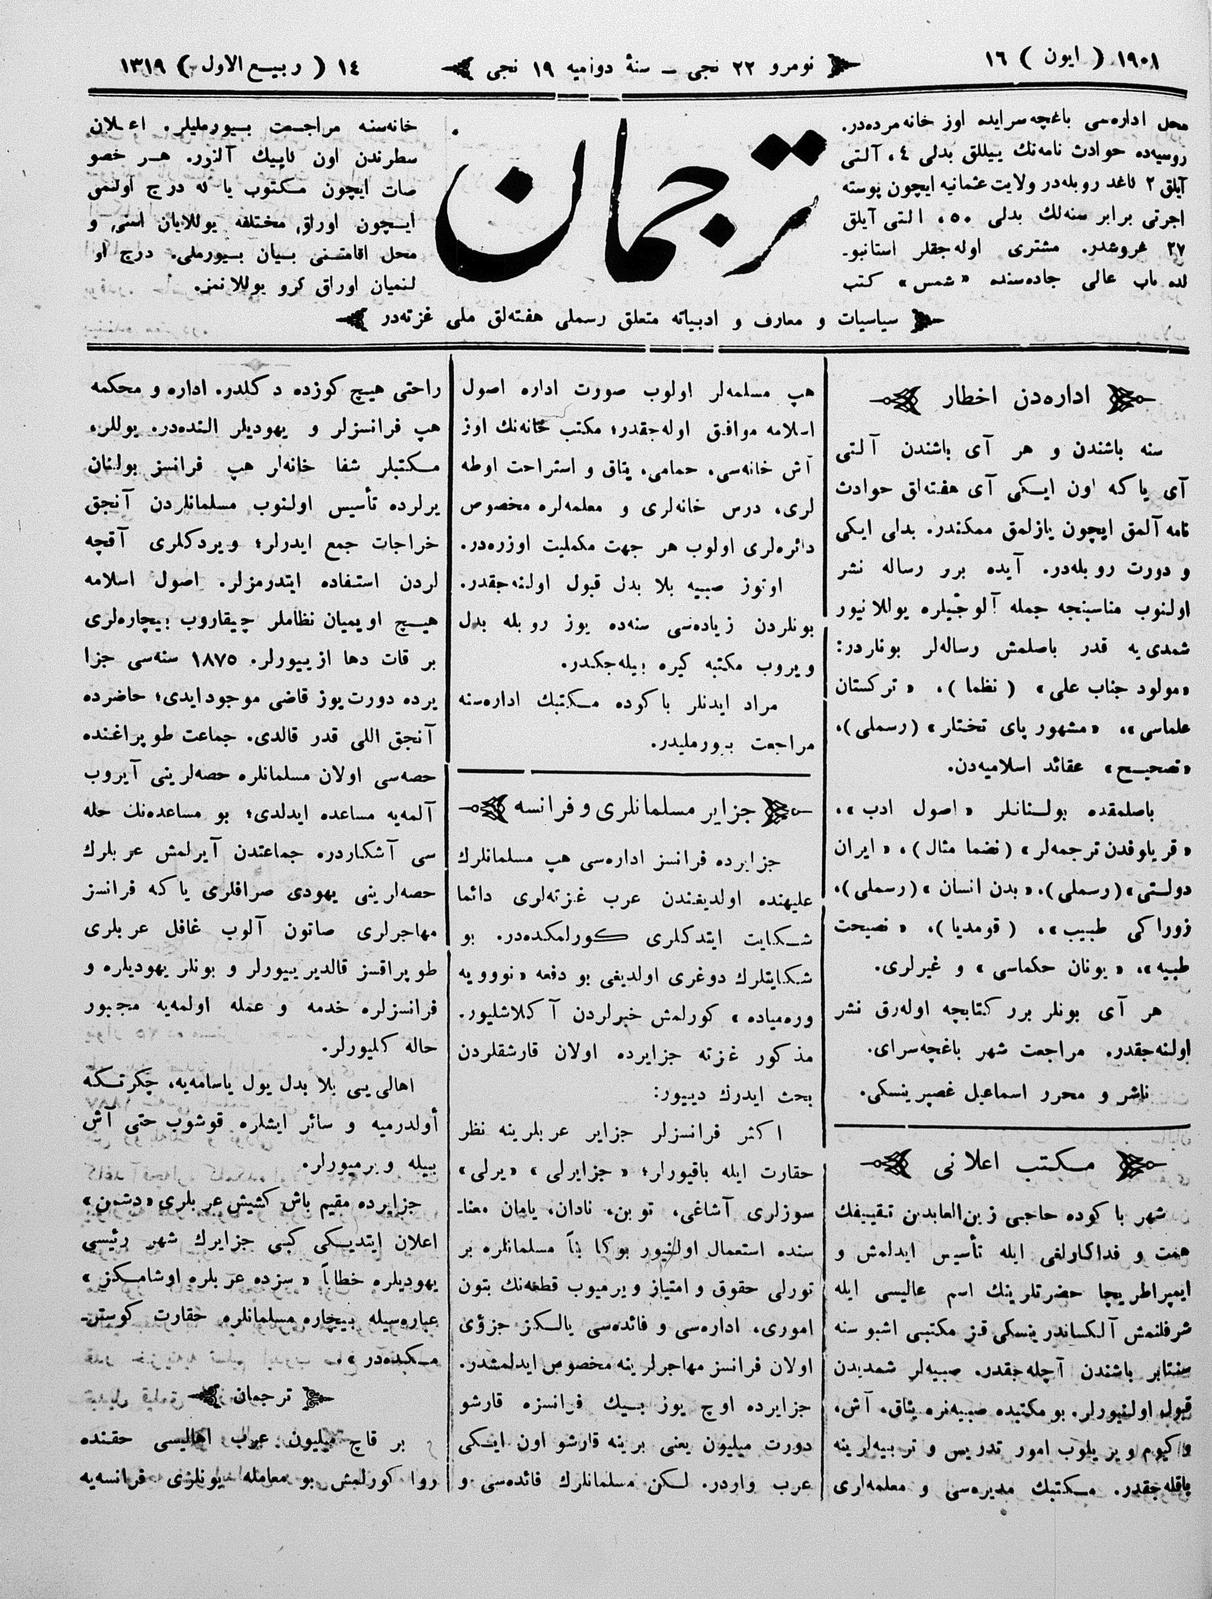 ١٩٠١ ( ایون ) ١٦
نومرو ٢٢ نجی — سنۀ دوامیه ١٩ نجی
١٤ ( ربیع الاول ) ١٣١٩
محل اداره‌سی باغچه‌سرایده اوز خانه مرده‌در.
روسیه‌ده حوادث نامه‌نك ییللق بدلی ٤، آلتی
آیلق ٢ کاغد روبله‌در ولایت عثمانیه ایچون پوسته
اجرتی برابر سنه‌لك بدلی ٥٠، التی آیلق
٢٧ غروشدر. مشتری اوله‌جقلر استانبو-
لده باب عالی جاده‌سنده «شمس» کتب
ترجمان
خانه‌سنه مراجعت بیورملیلر. اعلان
سطرندن اون کاپیك آلنور. هر خصو
صات ایچون مکتوب یا که درج اولنمق
ایچون اوراق مختلفه یوللایان اسمی و
محل اقامتنی بیان بیورملی. درج او
لنمیان اوراق کرو یوللانمز.
سیاسیات و معارف و ادبیاته متعلق رسملی هفته‌لق ملی غزته‌در
اداره‌دن اخطار
سنه باشندن و هر آی باشندن آلتی
آی یا که اون ایکی آی هفته‌لق حوادث
نامه آلمق ایچون یازلمق ممکندر. بدلی ایکی
و دورت روبله‌در. آیده برر رساله نشر
اولنوب مناسبنجه جمله آلوجیلره یوللانیور
شمدی‌یه قدر باصلمش رساله‌لر بونلردر:
«مولود جناب علی» (نظما)، «ترکستان
علماسی»، «مشهور پای تختلر» (رسملی)،
«تصحیح» عقائد اسلامیه‌دن.
باصلمقده بولنانلر «اصول ادب»،
«قریلوفدن ترجمه‌لر» (نضما مثال)، «ایران
دولتی» (رسملی)، «بدن انسان» (رسملی)،
زوراکی طبیب»، (قومدیا)، «نصیحت
طبیه»، «یونان حکماسی» و غیرلری.
هر آی بونلر برر کتابچه اوله‌رق نشر
اولنه‌جقدر. مراجعت شهر باغچه‌سرای.
ناشر و محرر اسماعیل غصپرینسکی.
مکتب اعلانی
شهر باکوده حاجی زین‌العابدین تقییفك
همت و فداکارلغی ایله تأسیس ایدلمش و
ایمپراطریچا حضرتلرینك اسم عالیسی ایله
شرفلنمش آلکساندرینسکی قز مکتبی اشبو سنه
سنتابر باشندن آچله‌جقدر. صبیه‌لر شمدیدن
قبول اولنیورلر. بو مکتبده صبیه‌لره یتاق، آش،
و کیوم ویریلوب امور تدریس و تربیه‌لرینه
باقله‌جقدر. مکتبك مدیره‌سی و معلمه‌لری
هپ مسلمه‌لر اولوب صورت اداره اصول
اسلامه موافق اوله‌جقدر؛ مکتب خانه‌نك اوز
آش خانه‌سی، حمامی، یتاق و استراحت اوطه
لری، درس خانه‌لری و معلمه‌لره مخصوص
دائره‌لری اولوب هر جهت مکملیت اوزره‌در.
اوتوز صبیه بلا بدل قبول اولنه‌جقدر.
بونلردن زیاده‌سی سنه‌ده یوز روبله بدل
ویروب مکتبه کیره بیله‌جکدر.
مراد ایدنلر باکوده مکتبك اداره‌سنه
مراجعت بیورملیدر.
جزایر مسلمانلری و فرانسه
جزایرده فرانسز اداره‌سی هپ مسلمانلرك
علیهنده اولدیغندن عرب غزته‌لری دائما
شکایت ایتدکلری کورلمکده‌در. بو
شکایتلرك دوغری اولدیغی بو دفعه «نووویه
وره‌میاده» کورلمش خبرلردن آکلاشلیور.
مذکور غزته جزایرده اولان قارشقلردن
بحث ایدرك دییور:
اکثر فرانسزلر جزایر عربلرینه نظر
حقارت ایله باقیورلر؛ «جزایرلی» «یرلی»
سوزلری آشاغی، توبن، نادان، یامان معنا-
سنده استعمال اولنیور بوکا بناً مسلمانلره بر
تورلی حقوق و امتیاز ویرمیوب قطعه‌نك بتون
اموری، اداره‌سی و فائده‌سی یالکز جزؤی
اولان فرانسز مهاجرلرینه مخصوص ایدلمشدر.
جزایرده اوچ یوز بیك فرانسزه قارشو
دورت میلیون یعنی برینه قارشو اون ایکی
عرب واردر. لکن مسلمانلرك فائده‌سی و
راحتی هیچ کوزده دکلدر. اداره و محکمه
هپ فرانسزلر و یهودیلر النده‌در. یوللر،
مکتبلر شفا خانه‌لر هپ فرانسز بولنان
یرلرده تأسیس اولنوب مسلمانلردن آنجق
خراجات جمع ایدرلر؛ ویردکلری آقچه
لردن استفاده ایتدرمزلر. اصول اسلامه
هیچ اویمیان نظاملر چیقاروب بیچاره‌لری
بر قات دها ازییورلر. ١٨٧٥ سنه‌سی جزا
یرده دورت یوز قاضی موجود ایدی؛ حاضرده
آنجق اللی قدر قالدی. جماعت طوپراغنده
حصه‌سی اولان مسلمانلره حصه‌لرینی آیروب
آلمه‌یه مساعده ایدلدی؛ بو مساعده‌نك حله
سی آشکاردره جماعتدن آیرلمش عربلرك
حصه‌لرینی یهودی صرافلری یا که فرانسز
مهاجرلری صاتون آلوب غافل عربلری
طوپراقسز قالدیرییورلر و بونلر یهودیلره و
فرانسزلره خدمه و عمله اولمه‌یه مجبور
حاله کلیورلر.
اهالی‌یی بلا بدل یول یاسامه‌یه، چکرتکه
أولدرمیه و سائر ایشلره قوشوب حتی آش
بیله ویرمیورلر.
جزایرده مقیم باش کشیش عربلری «دشمن»
اعلان ایتدیکی کبی جزایرك شهر رئیسی
یهودیلره خطاباً «سزده عربلره اوشامکز»
عباره‌سیله بیچاره مسلمانلره حقارت کوستر-
مکده‌در».
ترجمان
بر قاچ میلیون عرب اهالیسی حقنده
روا کورلمش بو معامله یونلری فرانسه‌یه